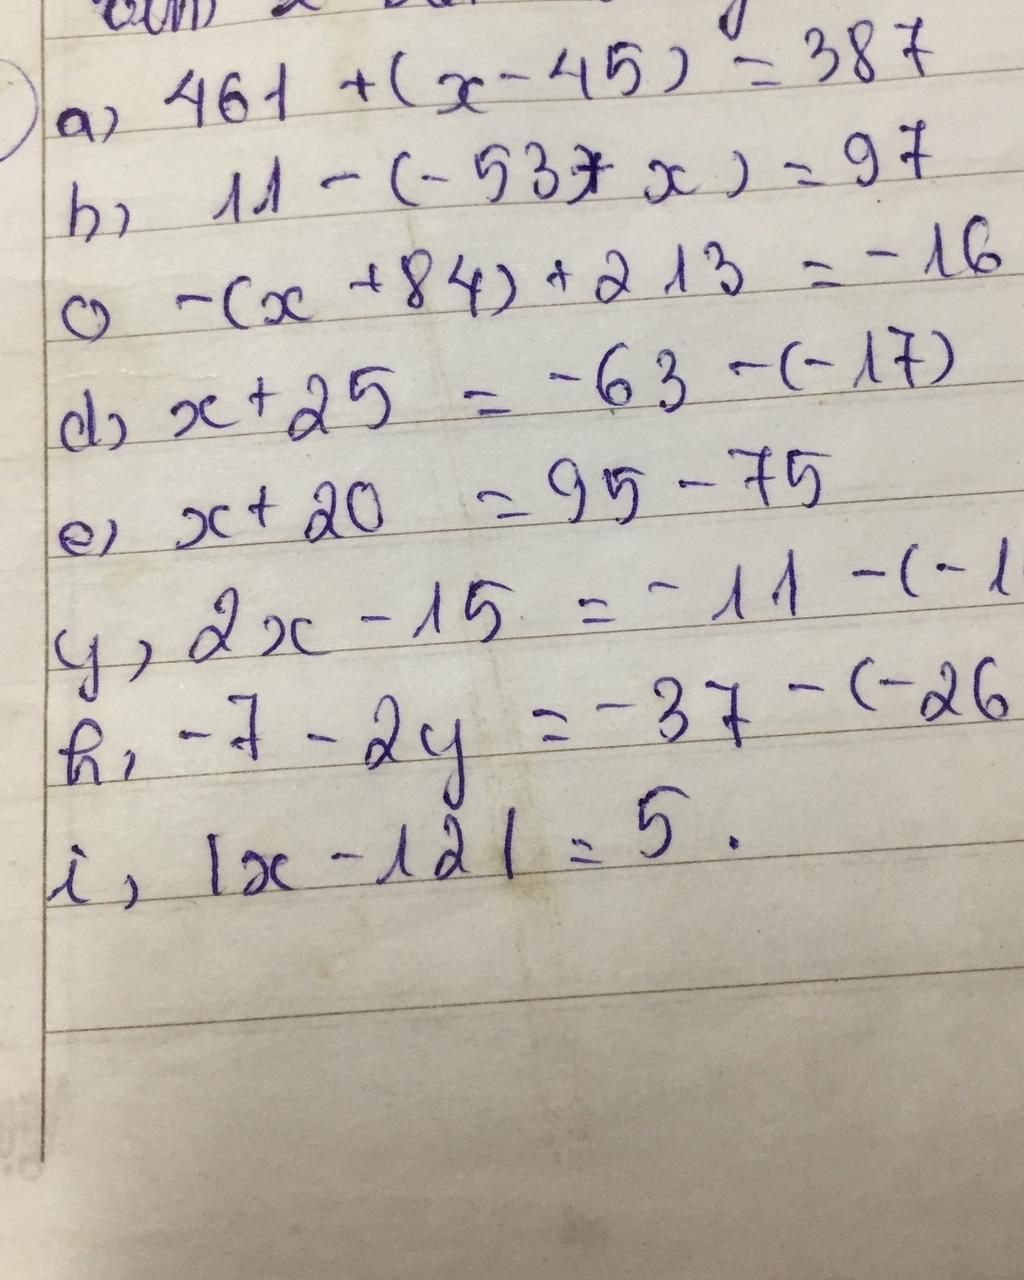 a) 461 + (x - 45) = 387
b) 11 - (-53 + x) = 97
c) -(x + 84) + 213 = -16
d) x + 25 = -63 - (-17)
e) x + 20 = 95 - 75
y, 2x - 15 = -11 - (-1
h, -7 - 2y = -37 - (-26
i, |x - 12| = 5.